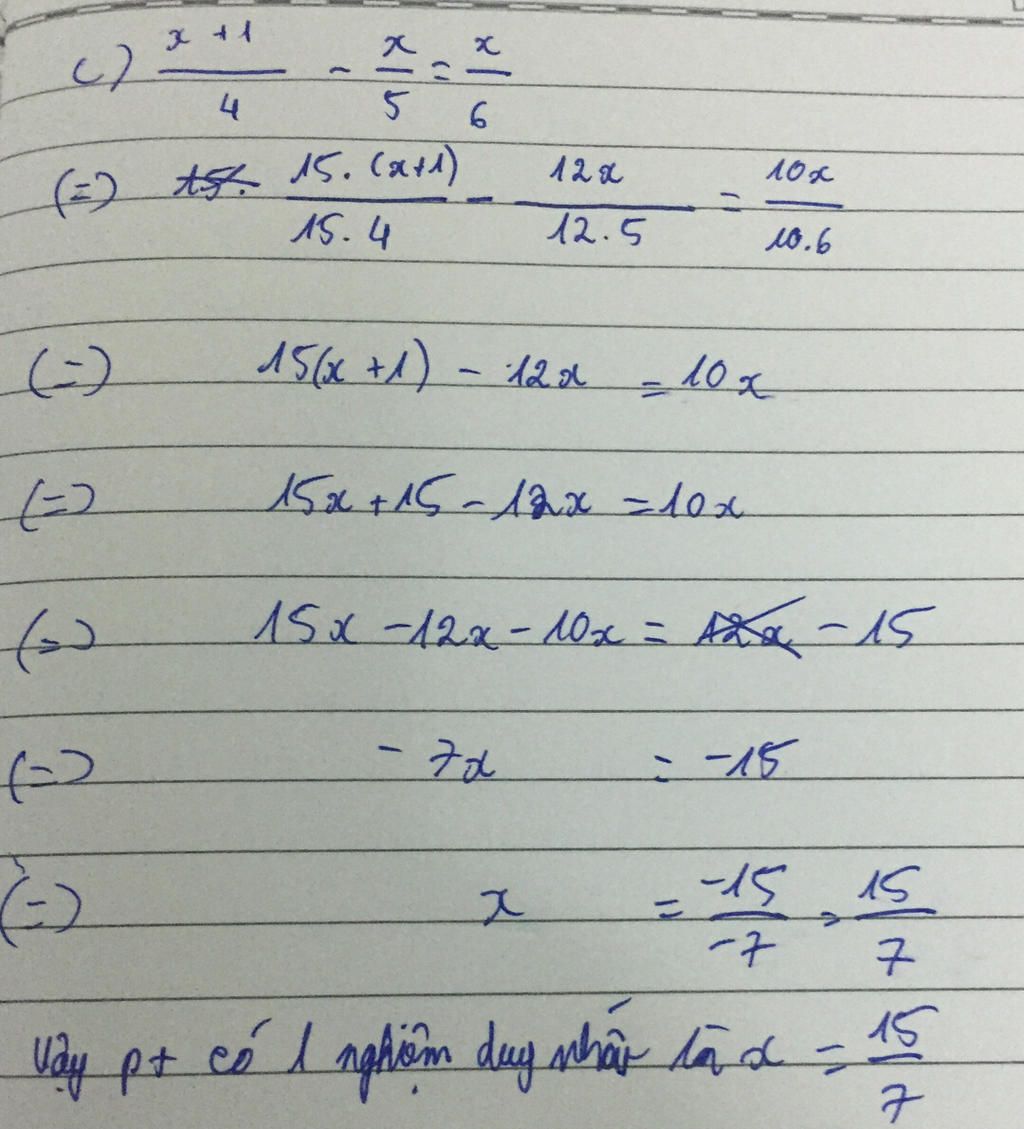 c) (x+1)/4 - x/5 = x/6
(=) 15. (x+1)/15.4 - 12x/12.5 = 10x/10.6
(=) 15(x+1) - 12x = 10x
(=) 15x+15-12x = 10x
(=) 15x -12x -10x = 12x -15
(=) -7x = -15
(=) x = -15/-7 = 15/7
Vậy pt có 1 nghiệm duy nhất là x = 15/7